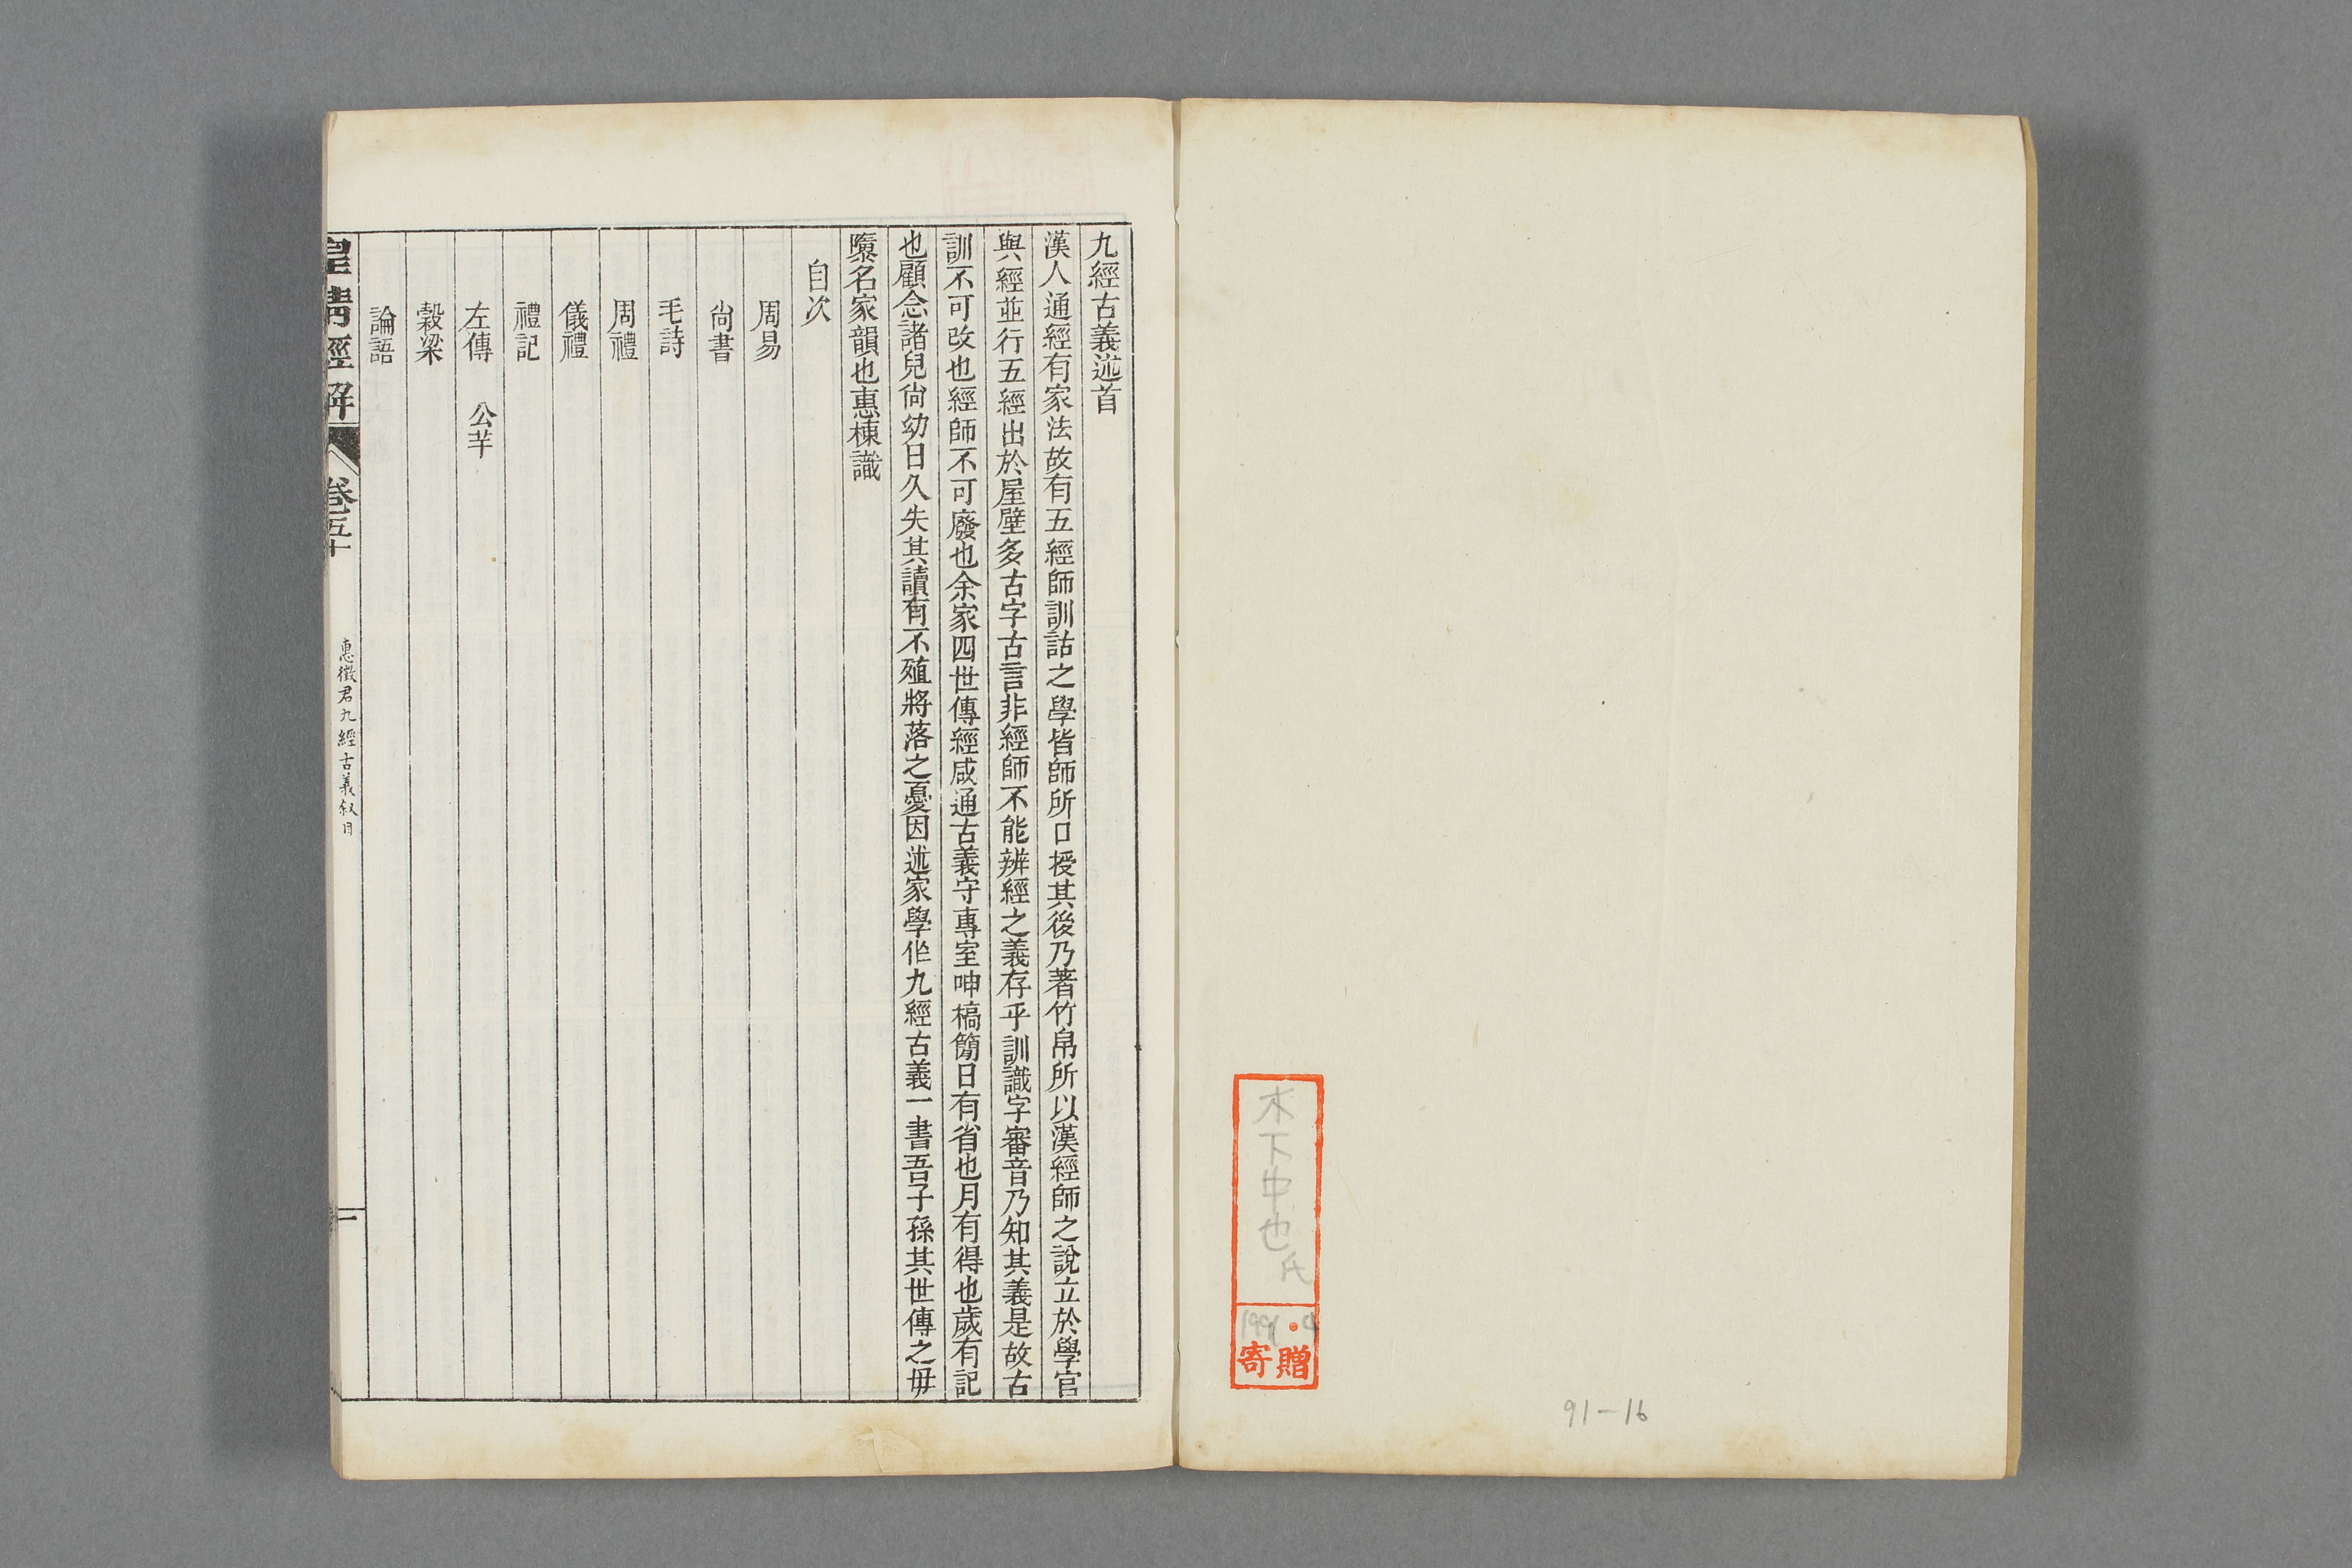 木下中也氏
寄贈
91-16
九經古義述首
漢人通經有家法故有五經師訓詁之學皆師所口授其後乃著竹帛所以漢經師之說立於學官
與經並行五經出於屋壁多古字古言非經師不能辨經之義存乎訓識字審音乃知其義是故古
訓不可改也經師不可廢也余家四世傳經咸通古義守專室呻槁簡日有省也月有得也歲有記
也顧念諸兒尙幼日久失其讀有不殖將落之憂因述家學作九經古義一書吾子孫其世傳之毋
隳名家韻也惠棟識
目次
周易
尙書
毛詩
周禮
儀禮
禮記
左傳 公羊
穀梁
論語
皇清經解 卷五十 惠徵君九經古義叙目 一